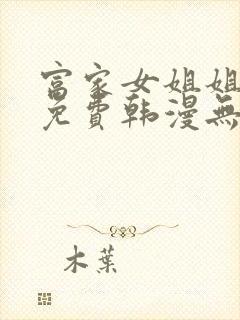 富家女姐姐
免費韩漫無
木葉